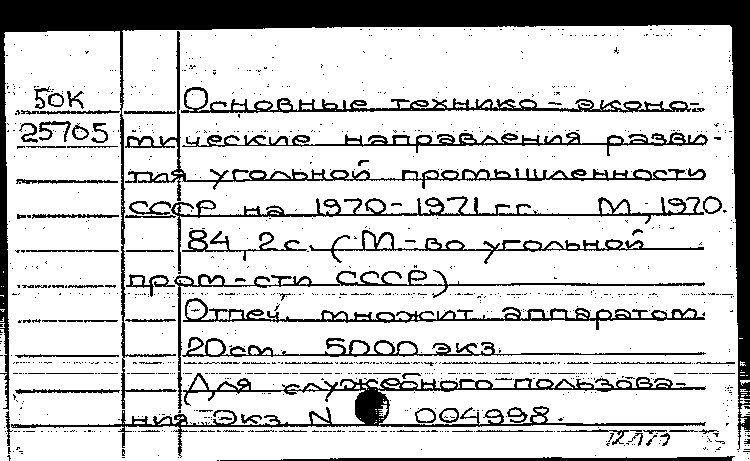 50К Основные технико-эконо-
25705 мические направления разви-
тия угольной промышленности
СССР на 1970-1971 гг. М., 1970.
84, 2 с. (М-во угольной
пром-сти СССР)
Отпеч. множит. аппаратом.
20 см. 5000 экз.
Для служебного пользова-
ния Экз. N 004998.